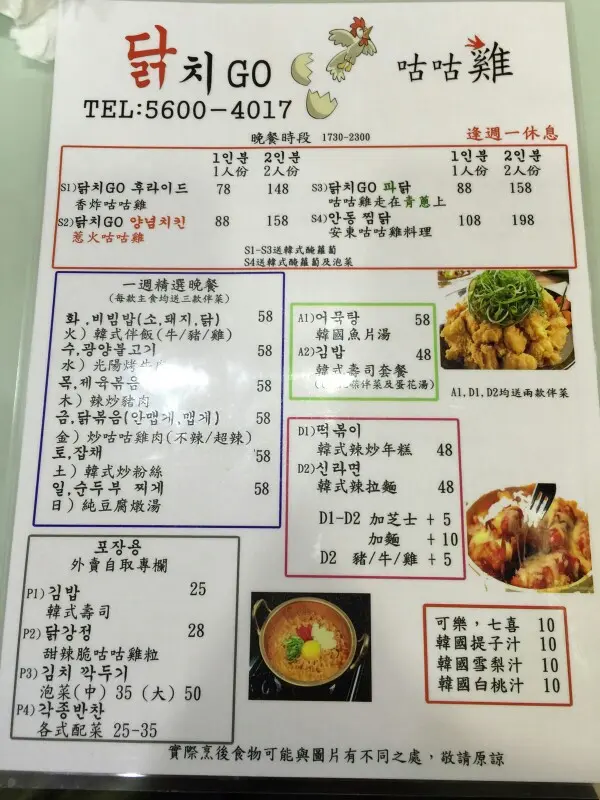 닭치GO 咕咕雞
TEL:5600-4017
晚餐時段 1730-2300 逢週一休息
1인분 2인분 1인분 2인분
1人份 2人份 1人份 2人份
S1)닭치GO 후라이드 78 148 S3)닭치GO 파닭 88 158
香炸咕咕雞 咕咕雞走在青蔥上
S2)닭치GO 양념치킨 88 158 S4)안동 찜닭 108 198
惹火咕咕雞 安東咕咕雞料理
S1-S3送韓式醃蘿蔔
S4送韓式醃蘿蔔及泡菜
一週精選晚餐
(每款主食均送三款伴菜)
화,비빔밥(소,돼지,닭) 58
火)韓式伴飯(牛/豬/雞)
수,광양불고기 58
水)光陽烤牛
목,제육볶음 58
木)辣炒豬肉
금,닭볶음(안맵게,맵게) 58
金)炒咕咕雞肉(不辣/超辣)
토,잡채 58
土)韓式炒粉絲
일,순두부 찌게 58
日)純豆腐燉湯
A1)어묵탕 58
韓國魚片湯
A2)김밥 48
韓式壽司套餐
伴菜及蛋花湯)
A1,D1,D2均送兩款伴菜
D1)떡볶이
韓式辣炒年糕 48
D2)신라면
韓式辣拉麵 48
D1-D2 加芝士 +5
加麵 +10
D2 豬/牛/雞 +5
포장용
外賣自取專欄
P1)김밥 25
韓式壽司
P2)닭강정 28
甜辣脆咕咕雞粒
P3)김치 깍두기
泡菜(中) 35 (大) 50
P4)각종반찬
各式配菜 25-35
可樂,七喜 10
韓國提子汁 10
韓國雪梨汁 10
韓國白桃汁 10
實際烹後食物可能與圖片有不同之處,敬請原諒